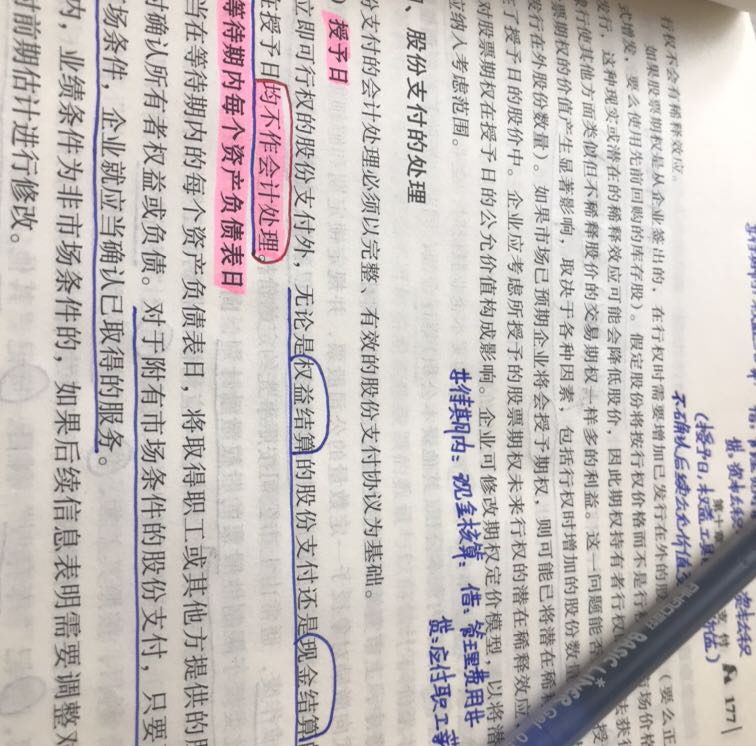 177
行权不会有稀释效应。
如果股票期权是从企业签出的，在行权时需要增加已发行在外的股
（要么正
式增发，要么使用先前回购的库存股）。假定股份将按行权价格而不是行
市场价格
发行，这种现实或潜在的稀释效应可能会降低股价，因此期权持有者行权
法获
行使其他方面类似但不稀释股价的交易期权一样多的利益。这一问题能否
授
票期权的价值产生显著影响，取决于各种因素，包括行权时增加的股份数
发行在外股份数量）。如果市场已预期企业将会授予期权，则可能已将潜在稀
了授予日的股价中。企业应考虑所授予的股票期权未来行权的潜在稀释效应
对股票期权在授予日的公允价值构成影响。企业可修改期权定价模型，以将潜
应纳入考虑范围。
等待期内：现金核算：借：管理费用等
贷：应付职工
、股份支付的处理
份支付的会计处理必须以完整、有效的股份支付协议为基础。
授予日
立即可行权的股份支付外，无论是权益结算的股份支付还是现金结算
在授予日均不作会计处理。
等待期内每个资产负债表日
当在等待期内的每个资产负债表日，将取得职工或其他方提供的
时确认所有者权益或负债。对于附有市场条件的股份支付，只要
场条件，企业就应当确认已取得的服务。
内，业绩条件为非市场条件的，如果后续信息表明需要调整对
前期估计进行修改。